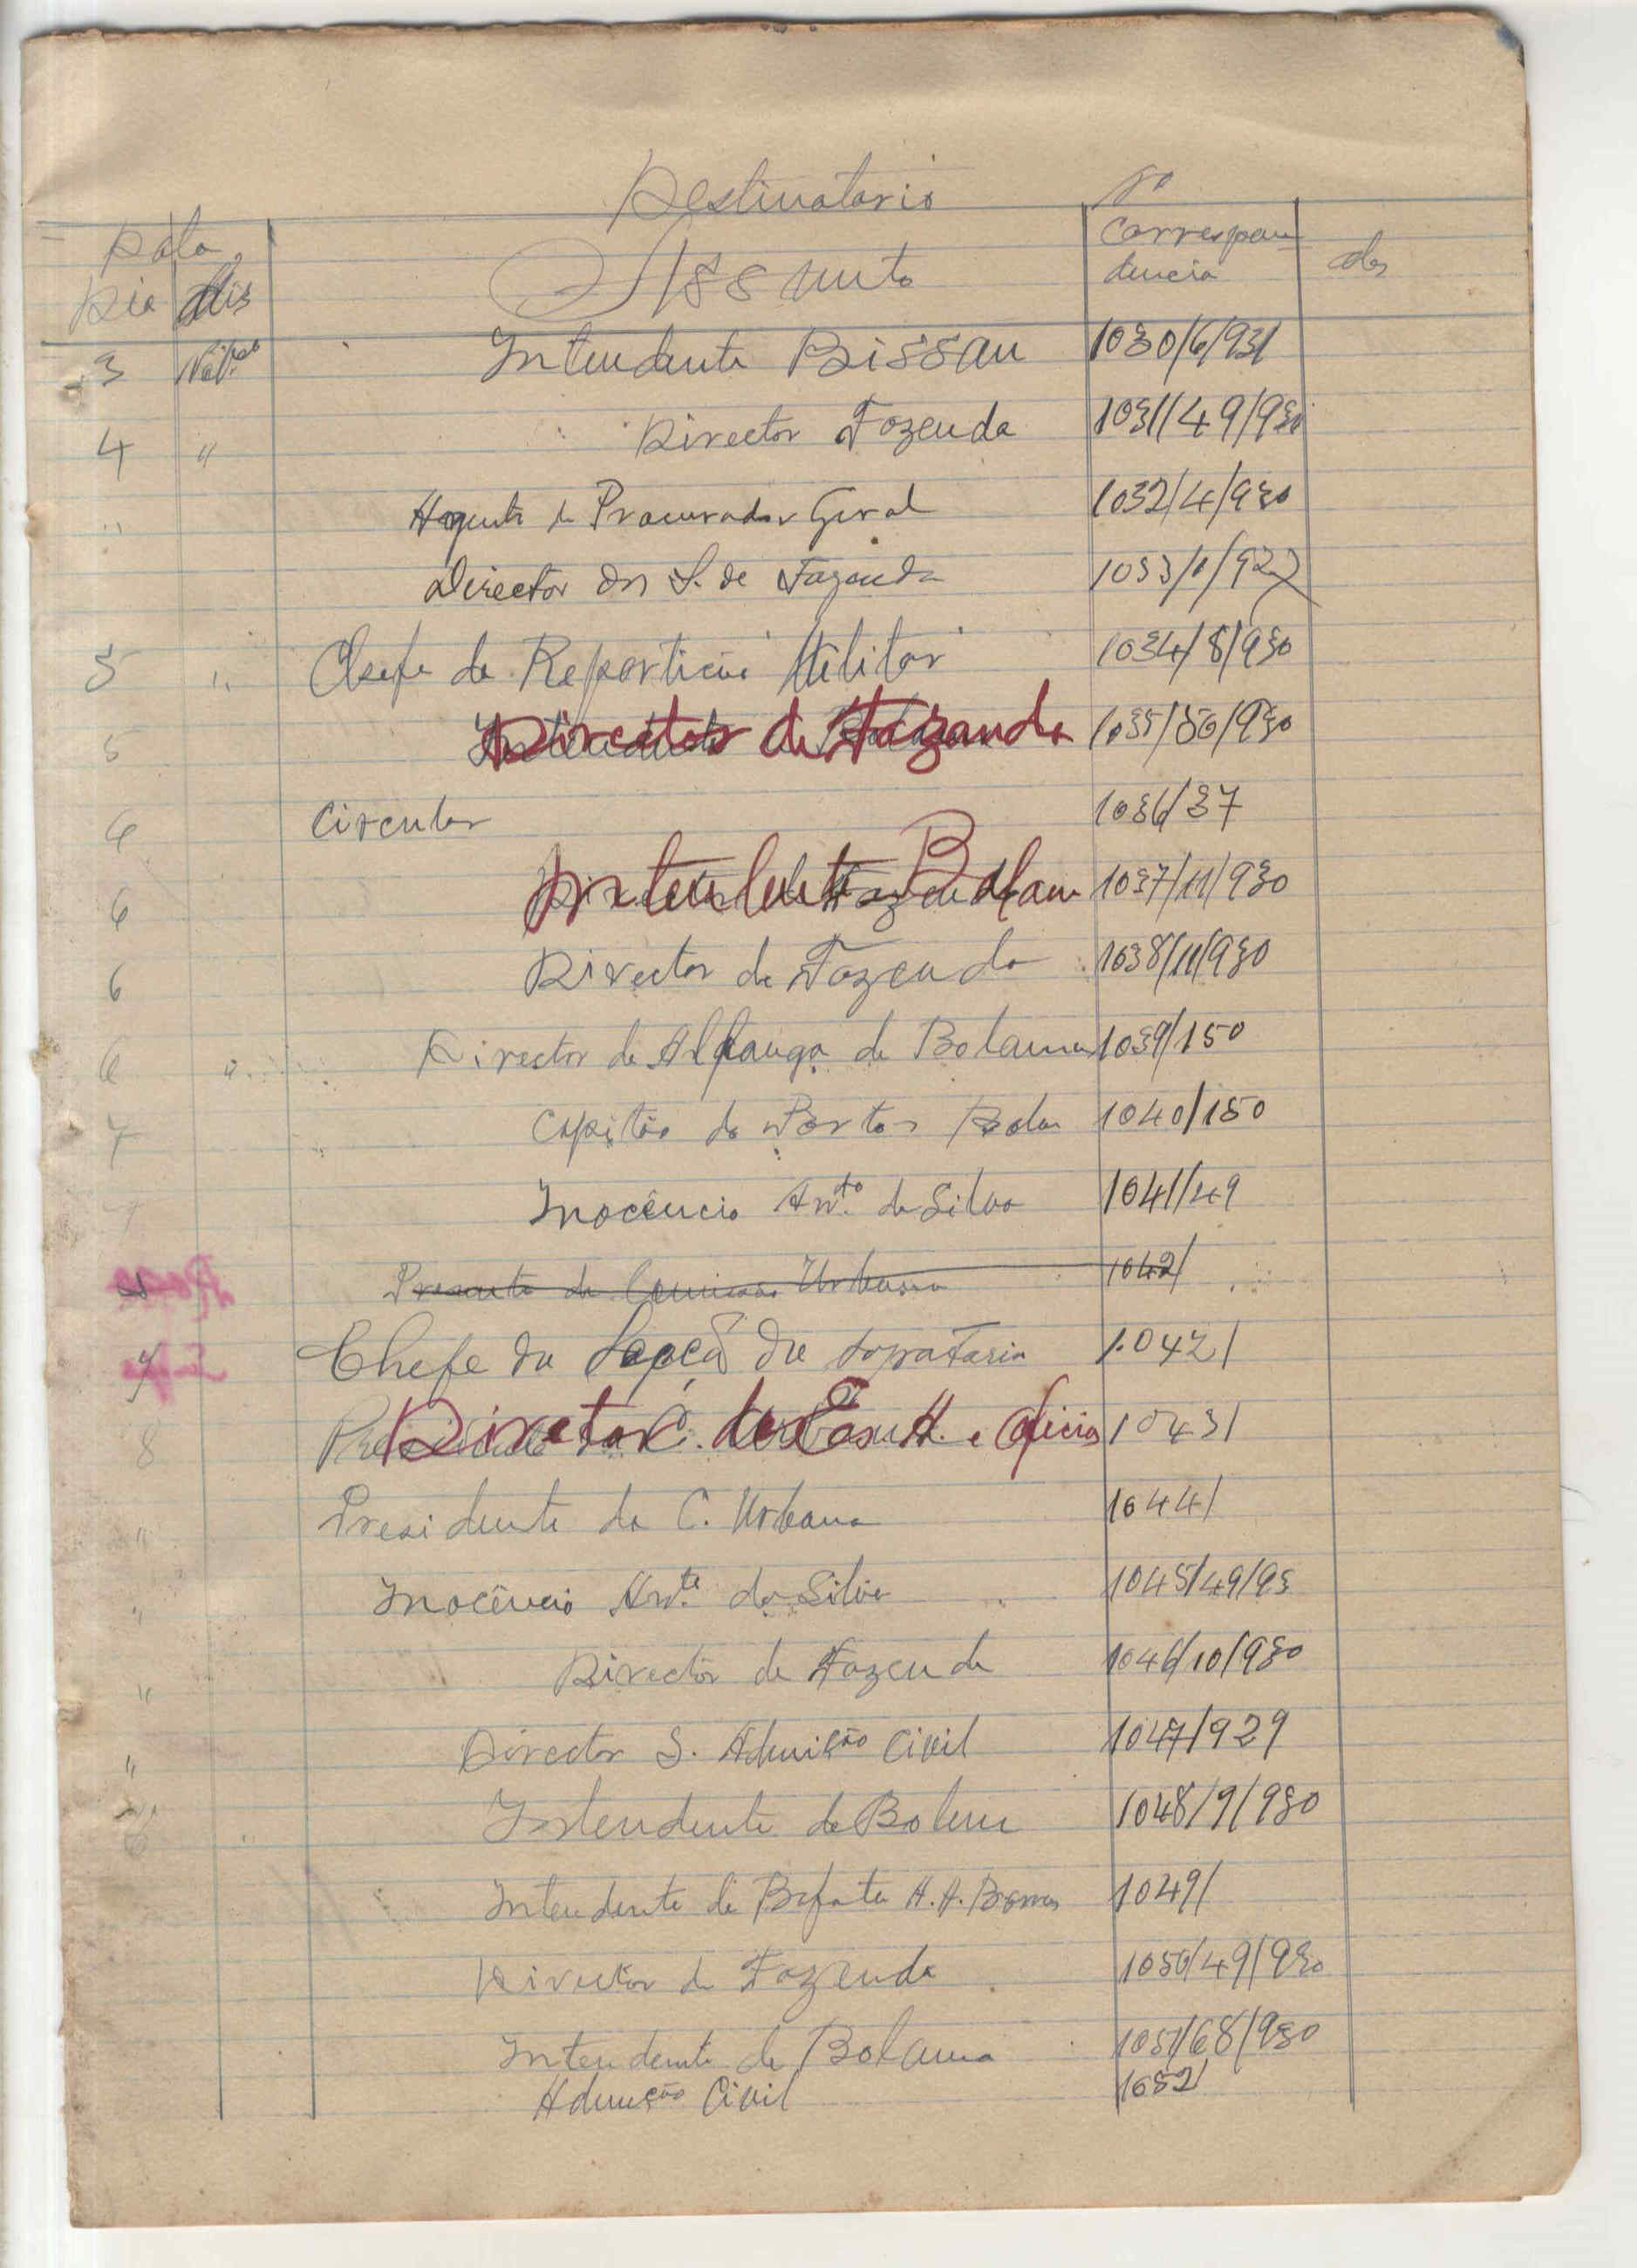 Destinatario Nº
Data Assunto Correspon
Dia Mês dencia
3 Intendente Bissau 1030/6/931
4 " Director Fazenda 1031/49/930
" Procurador Geral 1032/4/930
Director dos S. de Fazenda 1033/1/927
5 " Chefe da Repartição Militar 1034/8/930
5 Director de Fazenda 1035/50/930
6 Circular 1036/37
6 Intendente Bolama 1037/11/930
6 Director de Fazenda 1038/11/930
6 " Director de Alfandega de Bolama 1039/150
7 Capitão do Portos Bolama 1040/150
7 Inocêncio Antº da Silva 1041/49
Comissão Urbana 1042/
7 Chefe da Secção de 1.042/
8 Director da e Oficios 1043/
" Presidente da C. Urbana 1044/
" Inocêncio da Silva 1045/49/93
" Director de Fazenda 1046/10/930
" Director S. Admição Civil 1047/929
" Intendente de Bolama 1048/9/930
Intendente de Bafata 1049/
Director de Fazenda 1050/49/930
Intendente de Bolama 1051/68/930
Admição Civil 1052/